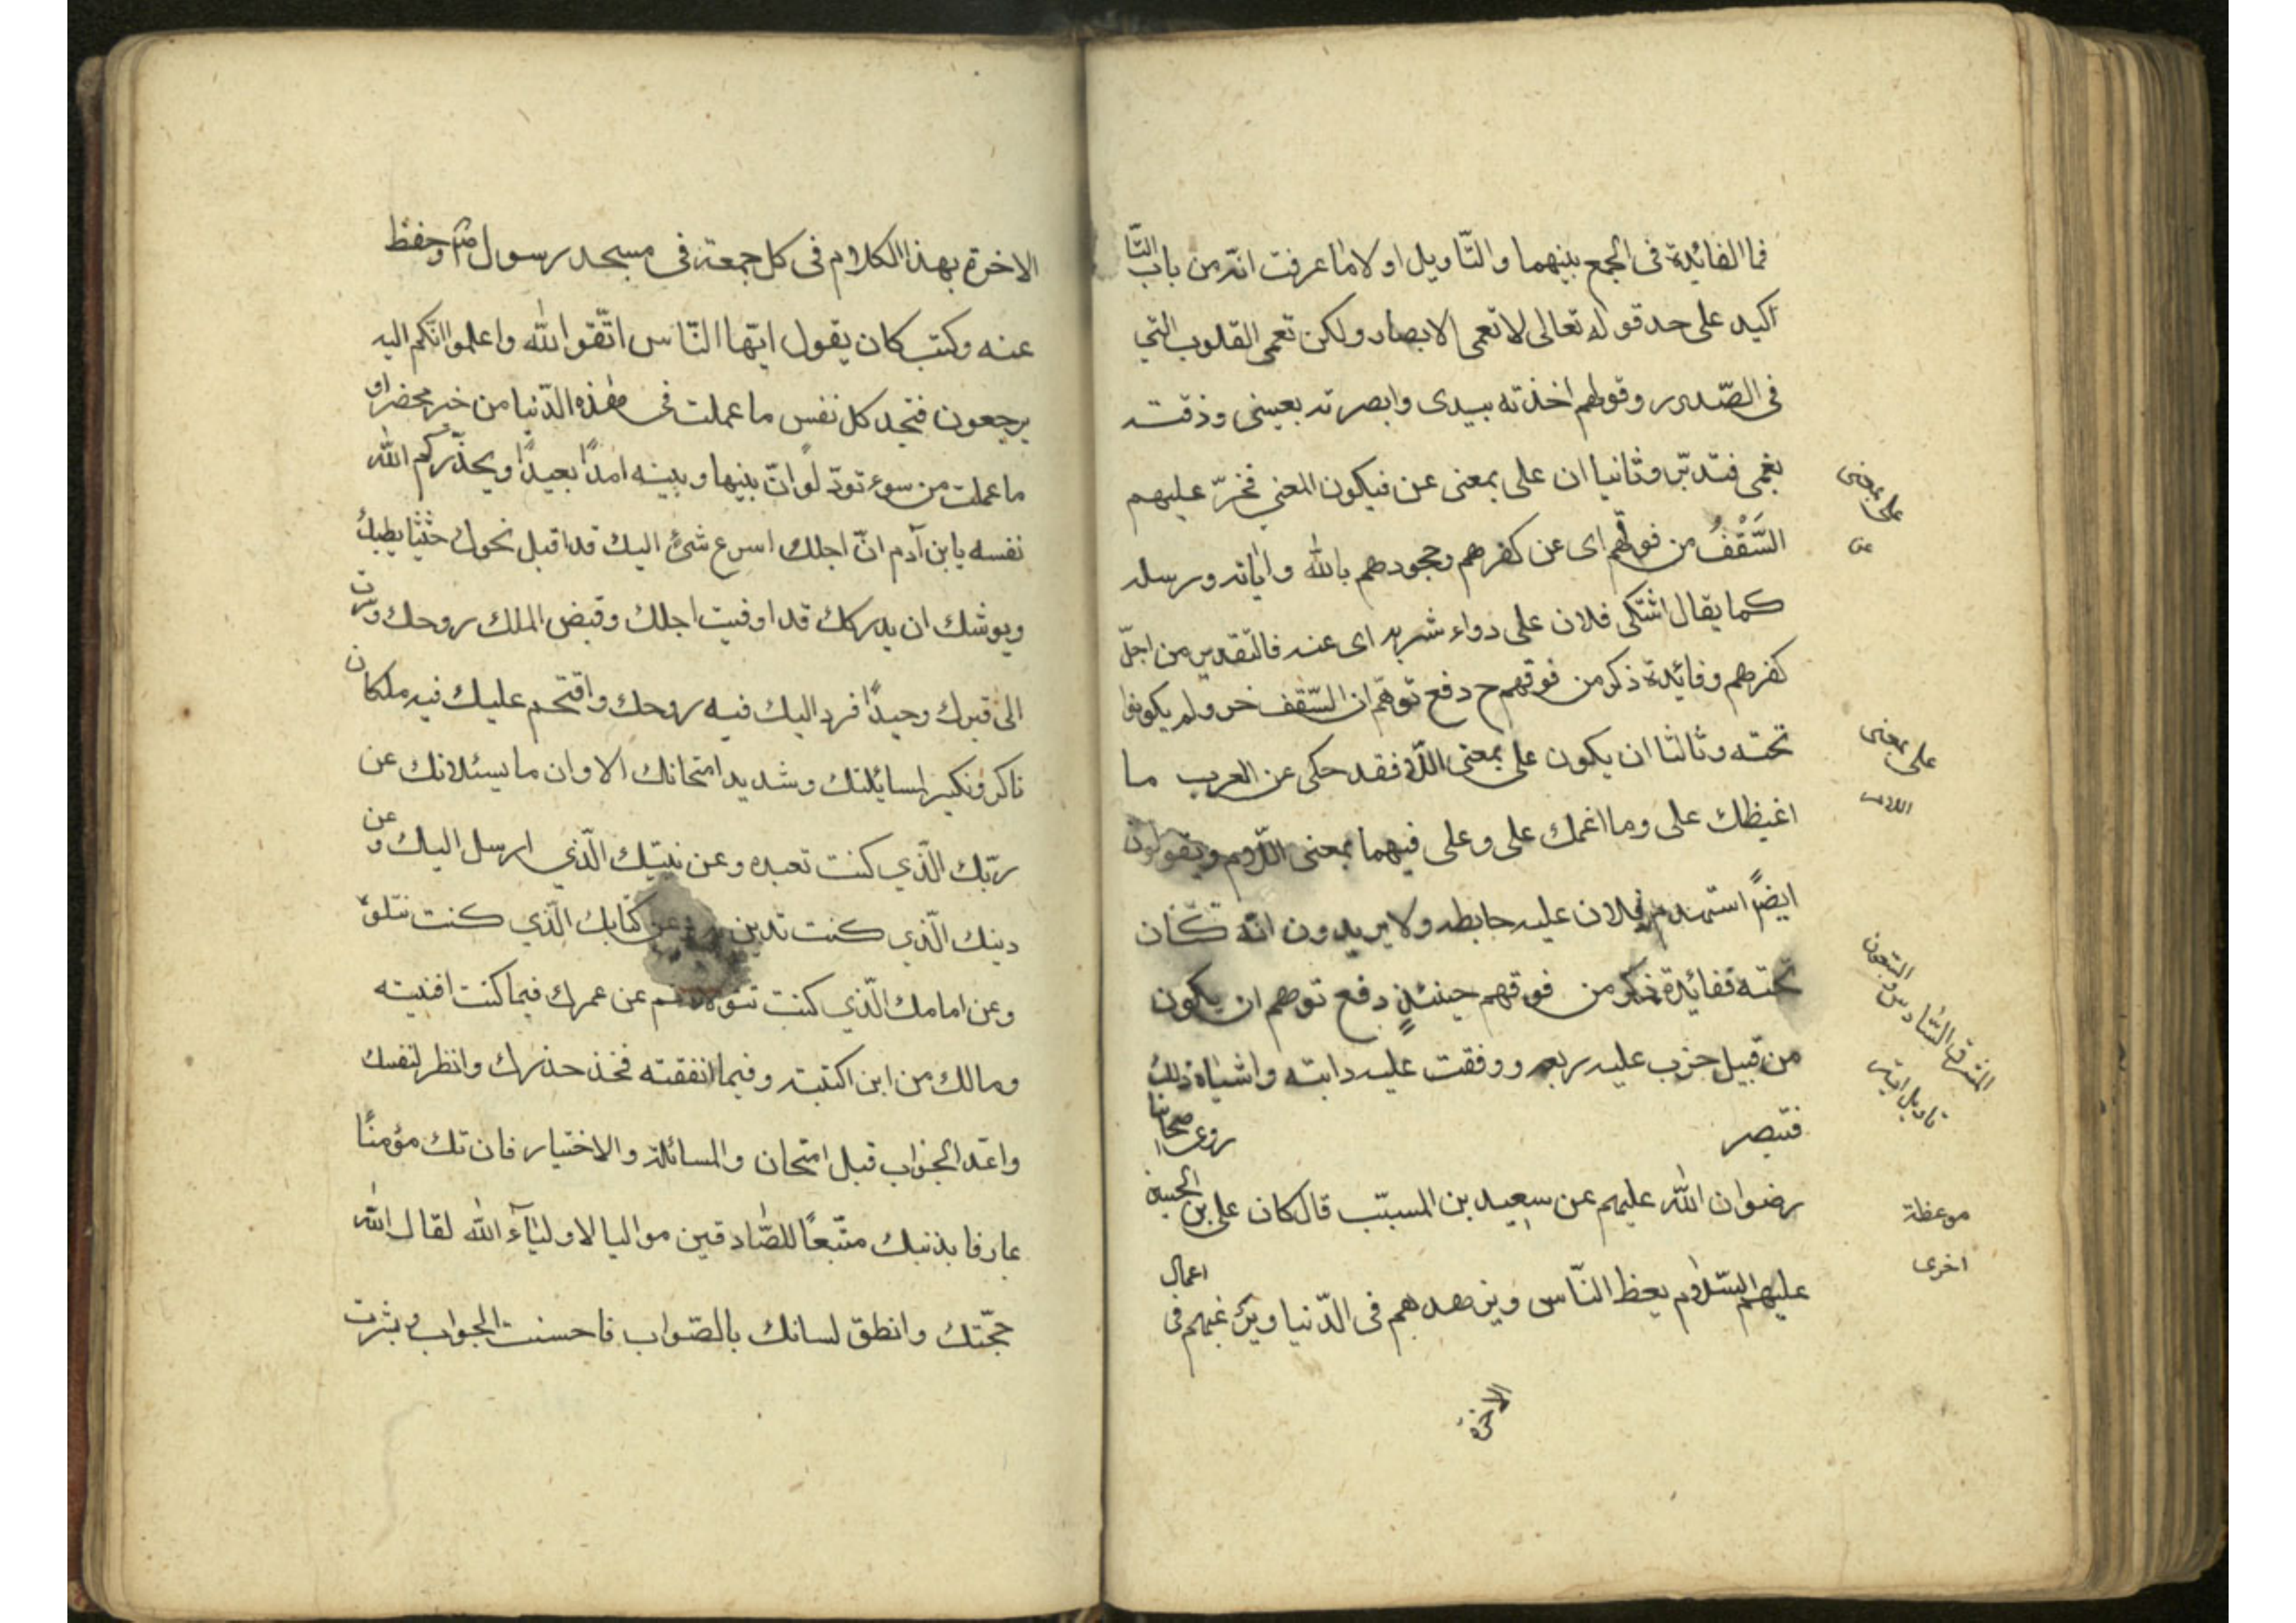 فما الفائدة فى الجمع بينهما والتّاويل اولا ما عرفت انّه من باب التّا
كيد على حد قوله تعالى لا تعمى الابصار ولكن تعمى القلوب التى
فى الصّدور وقولهم اخذته بيدى وابصرته بعينى وذقته
بفمى فتدبّر وثانيا ان على بمعنى عن فيكون المعنى فخرّ عليهم
على بمعنى
عن
السَّقْفُ من فوقهم اى عن كفرهم وجحودهم بالله واياته ورسله
كما يقال اشتكى فلان على دواء شربه اى عنه فالتقدير من اجل
كفرهم وفائدة ذكر من فوقهم ح دفع توهّم ان السّقف خر ولم يكونوا
تحته وثالثا ان يكون على بمعنى اللّام فقد حكى عن العرب ما
على بمعنى
اللام
اغيظك على وما اغمك على وعلى فيهما بمعنى اللّام ويقولون
ايضًا استهدم فلان عليه حايطه ولا يريدون انّه كان
تحته ففائدة ذكر من فوقهم حينئذٍ دفع توهم ان يكون
المشرق السّادس والتسعون
تاويل اية
من قبيل خرب عليه ربعه ووقفت عليه دابته واشباه ذلك
فتبصر روى اصحابنا
رضوان الله عليهم عن سعيد بن المسيّب قال كان على بن الحسين
موعظة
اخرى
عليهم السّلام يعظ النّاس ويزهدهم فى الدّنيا ويرغبهم فى اعمال
الاخرة
الاخرة بهذا الكلام فى كل جمعة فى مسجد رسول وحفظ
عنه وكتب كان يقول ايّها النّاس اتّقوا الله واعلموا انّكم اليه
يرجعون فتجد كل نفس ما عملت فى هذه الدّنيا من خير محضرا و
ما عملت من سوء تودّ لو انّ بينها وبينه امدًا بعيدًا ويحذّركم الله
نفسه يابن آدم انّ اجلك اسرع شئ اليك قد اقبل نحوك حثيثا يطلبك
ويوشك ان يدركك قد اوفيت اجلك وقبض الملك روحك وصرت
الى قبرك وحيدًا فرد اليك فيه روحك واقتحم عليك فيه ملكان
ناكر ونكير لمسايلتك وشديد امتحانك الا وان ما يسئلانك عن
ربّك الّذي كنت تعبده وعن نبيّك الّذي ارسل اليك وعن
دينك الّذي كنت تدين به وعن كتابك الّذي كنت تتلوه
وعن امامك الّذي كنت تتولاه ثم عن عمرك فيما كنت افنيته
ومالك من اين اكتسبته وفيما انفقته فخذ حذرك وانظر لنفسك
واعد الجواب قبل امتحان والمسائلة والاختيار فان تك مؤمنًا
عارفا بذنبك متّبعًا للصّادقين مواليا لاولياء الله لقال الله
حجّتك وانطق لسانك بالصّواب فاحسنت الجواب وبشرت